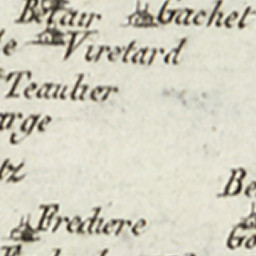 Belair Gachet
Viretard
Teaulier
arge
tz
Be
Frediere
Go